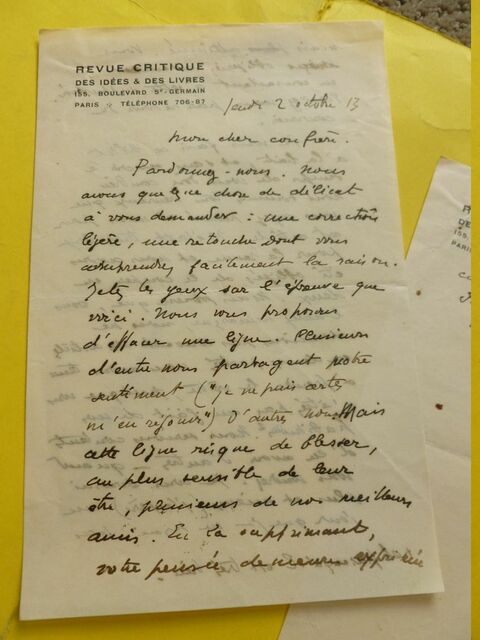 REVUE CRITIQUE
DES IDÉES & DES LIVRES
155, BOULEVARD St-GERMAIN
PARIS TÉLÉPHONE 706-87
Jeudi 2 octobre 13
Mon cher confrère.
Pardonnez-nous. Nous
avons quelque chose de délicat
à vous demander : une correction
légère, une retouche dont vous
comprendrez facilement la raison.
Jetez les yeux sur l'épreuve que
voici. Nous vous proposons
d'effacer une ligne. Plusieurs
d'entre nous partagent votre
sentiment ("je ne puis certes
m'en réjouir") D'autres non. Mais
cette ligne risque de blesser,
au plus sensible de leur
être, plusieurs de nos meilleurs
amis. En la supprimant,
votre pensée demeure exprimée
REV
DES ID
155,
PARIS